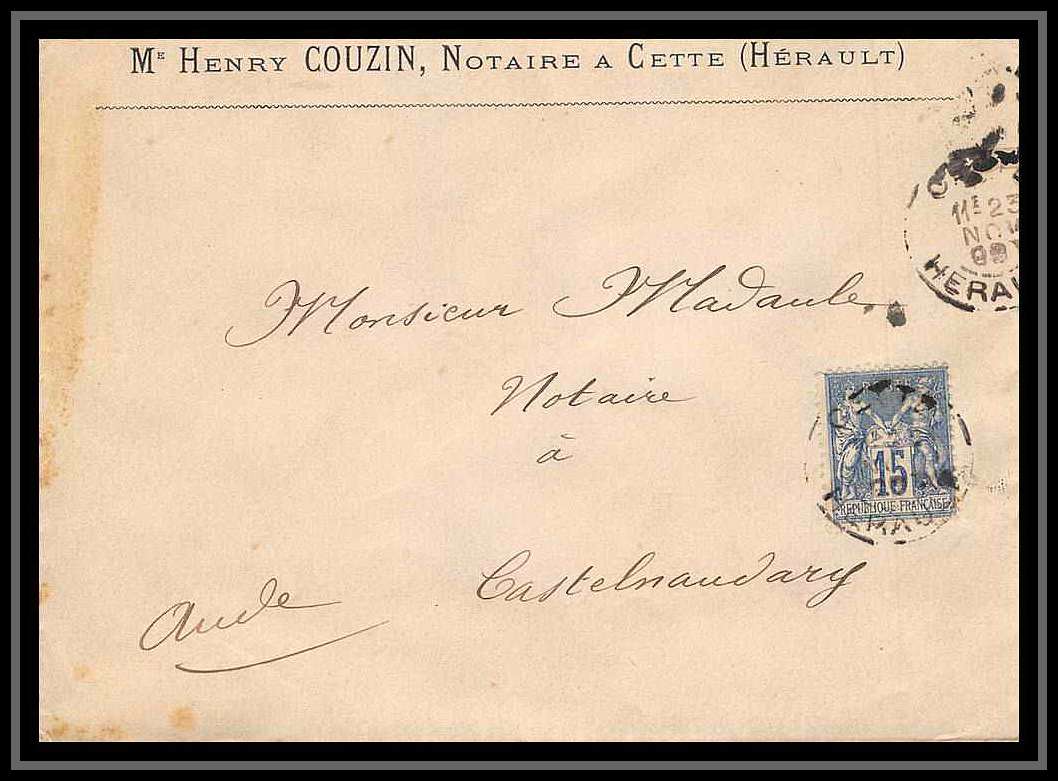 Mᴱ HENRY COUZIN, NOTAIRE A CETTE (HÉRAULT)
11ᴱ 23
NOV
HERAU
Monsieur Madaule
Notaire
à
15
REPUBLIQUE FRANÇAISE
Castelnaudary
Aude